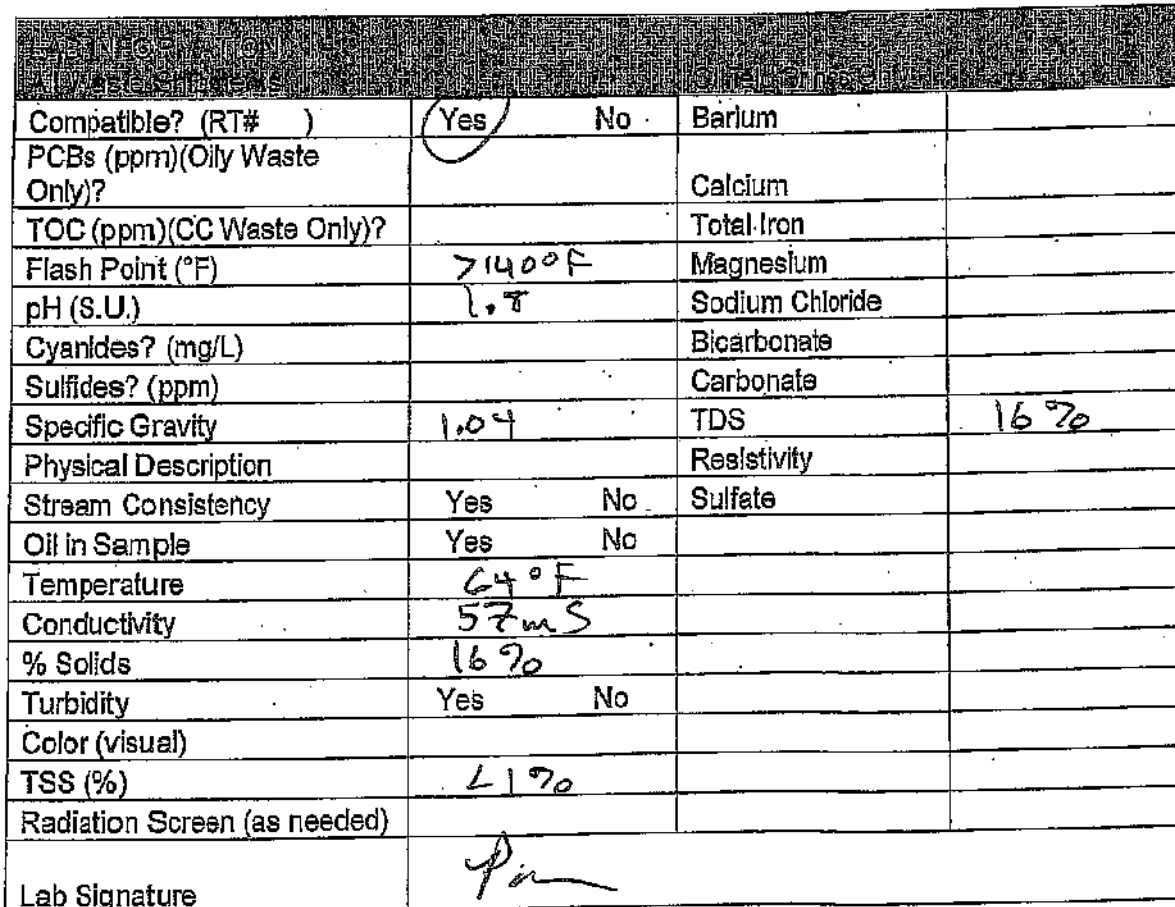 LAB INFORMATION
All Waste Streams
Compatible? (RT# ) Yes No Barium
PCBs (ppm)(Oily Waste
Only)? Calcium
TOC (ppm)(CC Waste Only)? Total Iron
Flash Point (°F) >140°F Magnesium
pH (S.U.) 1.8 Sodium Chloride
Cyanides? (mg/L) Bicarbonate
Sulfides? (ppm) Carbonate
Specific Gravity 1.04 TDS 16%
Physical Description Resistivity
Stream Consistency Yes No Sulfate
Oil in Sample Yes No
Temperature 64°F
Conductivity 57mS
% Solids 16%
Turbidity Yes No
Color (visual)
TSS (%) <1%
Radiation Screen (as needed)
Lab Signature